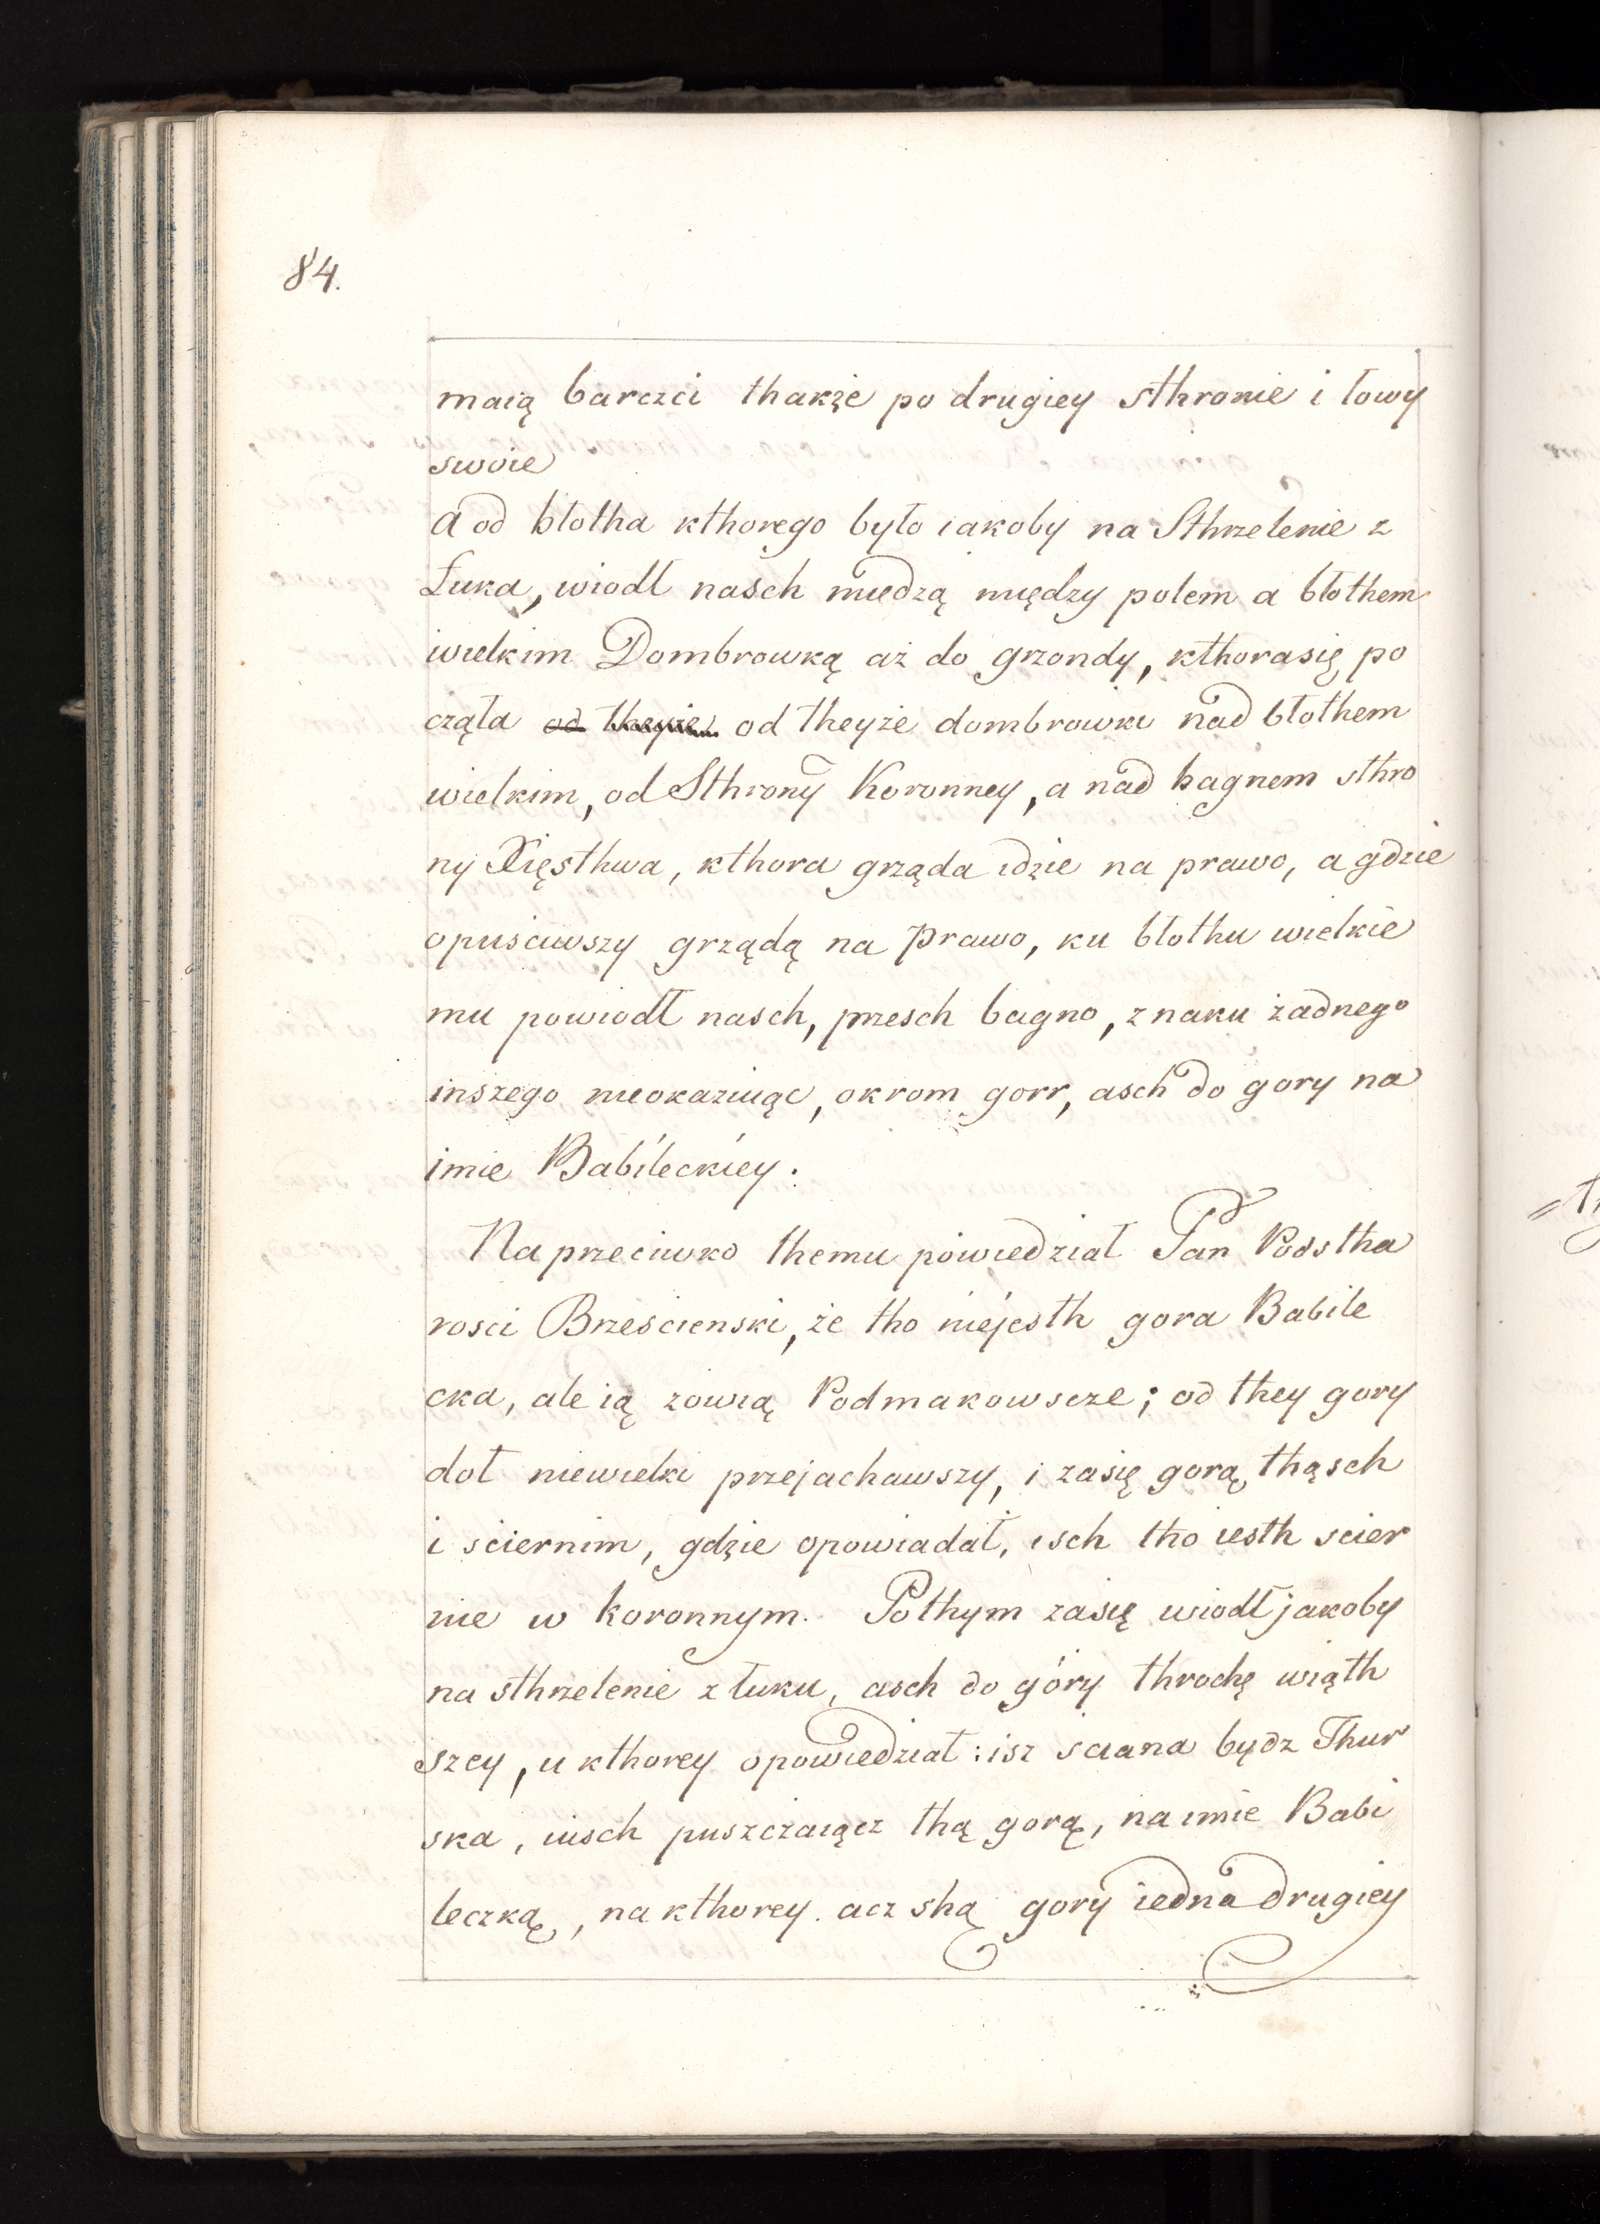 84.
maią barczi thakże po drugiey sthronie i łowy
swoie
a od błotha kthorego było iakoby na Sthrzelenie z
Łuka, wiodł nasch miedzą między polem a błothem
wielkim Dombrowką aż do grzondy, kthorasię po
częła od theyże dombrowki nad błothem
wielkim, od Sthrony Koronney, a nad bagnem sthro
ny Xięsthwa, kthora grząda idzie na prawo, a gdzie
opusciwszy grządą na prawo, ku błothu wielkie
mu powiodł nasch, przesch bagno, znaku żadnego
inszego nieokazuiąc, okrom gorr, asch do gory na
imie Babileckiey.
Naprzeciwko themu powiedział Pan Podstha
rosci Brzescienski, że tho niejesth gora Babile
cka, ale ią zowią Podmakowscze; od they gory
doł niewielki przejachawszy, i zasię gorą thąsch
i sciernim, gdzie opowiadał, isch tho iesth scier
nie w koronnym. Pothym zasię wiodł jakoby
na sthrzelenie z łuku, asch do góry throchę wiąth
szey, u kthorey opowiedział: isz sciana bydz Thur
ska, iusch puszczaiącz thą gorą, na imie Babi
leczką, na kthorey acz shą gory iedna drugiey